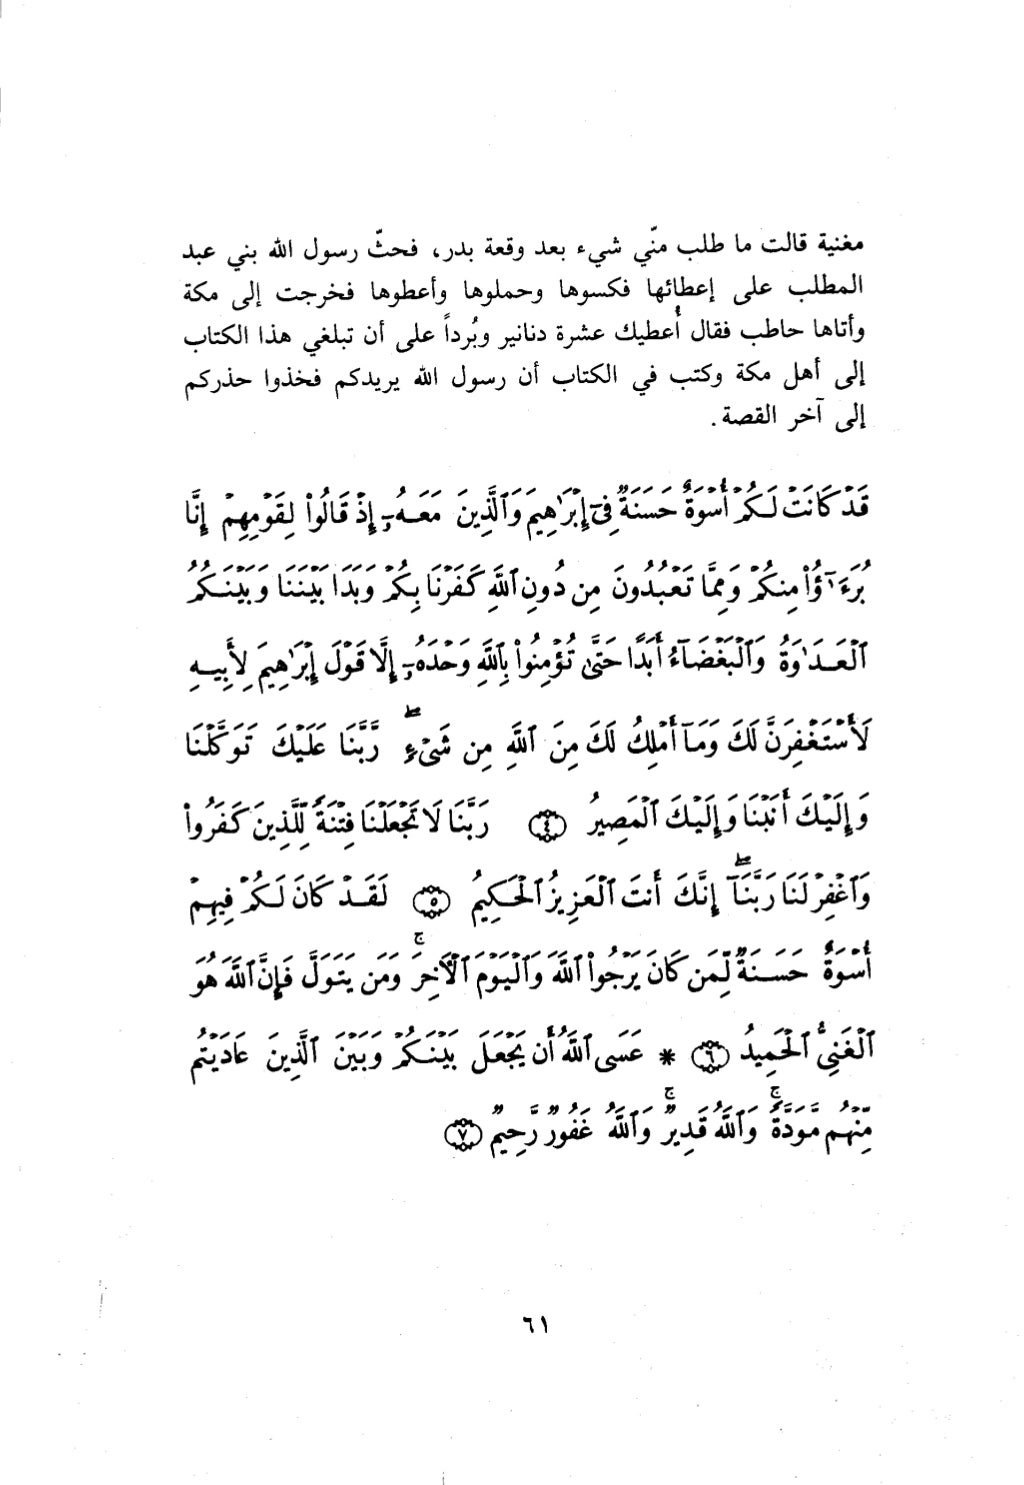 مغنية قالت ما طلب منّي شيء بعد وقعة بدر، فحثّ رسول الله بني عبد
المطلب على إعطائها فكسوها وحملوها وأعطوها فخرجت إلى مكة
وأتاها حاطب فقال أُعطيك عشرة دنانير وبُرداً على أن تبلغي هذا الكتاب
إلى أهل مكة وكتب في الكتاب أن رسول الله يريدكم فخذوا حذركم
إلى آخر القصة.
قَدْ كَانَتْ لَكُمْ أُسْوَةٌ حَسَنَةٌ فِىٓ إِبْرَٰهِيمَ وَٱلَّذِينَ مَعَهُۥٓ إِذْ قَالُوا۟ لِقَوْمِهِمْ إِنَّا
بُرَءَٰٓؤُا۟ مِنكُمْ وَمِمَّا تَعْبُدُونَ مِن دُونِ ٱللَّهِ كَفَرْنَا بِكُمْ وَبَدَا بَيْنَنَا وَبَيْنَكُمُ
ٱلْعَدَٰوَةُ وَٱلْبَغْضَآءُ أَبَدًا حَتَّىٰ تُؤْمِنُوا۟ بِٱللَّهِ وَحْدَهُۥٓ إِلَّا قَوْلَ إِبْرَٰهِيمَ لِأَبِيهِ
لَأَسْتَغْفِرَنَّ لَكَ وَمَآ أَمْلِكُ لَكَ مِنَ ٱللَّهِ مِن شَىْءٍ ۖ رَّبَّنَا عَلَيْكَ تَوَكَّلْنَا
وَإِلَيْكَ أَنَبْنَا وَإِلَيْكَ ٱلْمَصِيرُ ﴿٤﴾ رَبَّنَا لَا تَجْعَلْنَا فِتْنَةً لِّلَّذِينَ كَفَرُوا۟
وَٱغْفِرْ لَنَا رَبَّنَآ ۖ إِنَّكَ أَنتَ ٱلْعَزِيزُ ٱلْحَكِيمُ ﴿٥﴾ لَقَدْ كَانَ لَكُمْ فِيهِمْ
أُسْوَةٌ حَسَنَةٌ لِّمَن كَانَ يَرْجُوا۟ ٱللَّهَ وَٱلْيَوْمَ ٱلْآخِرَ ۚ وَمَن يَتَوَلَّ فَإِنَّ ٱللَّهَ هُوَ
ٱلْغَنِىُّ ٱلْحَمِيدُ ﴿٦﴾ * عَسَى ٱللَّهُ أَن يَجْعَلَ بَيْنَكُمْ وَبَيْنَ ٱلَّذِينَ عَادَيْتُم
مِّنْهُم مَّوَدَّةً ۚ وَٱللَّهُ قَدِيرٌ ۚ وَٱللَّهُ غَفُورٌ رَّحِيمٌ ﴿٧﴾
٦١